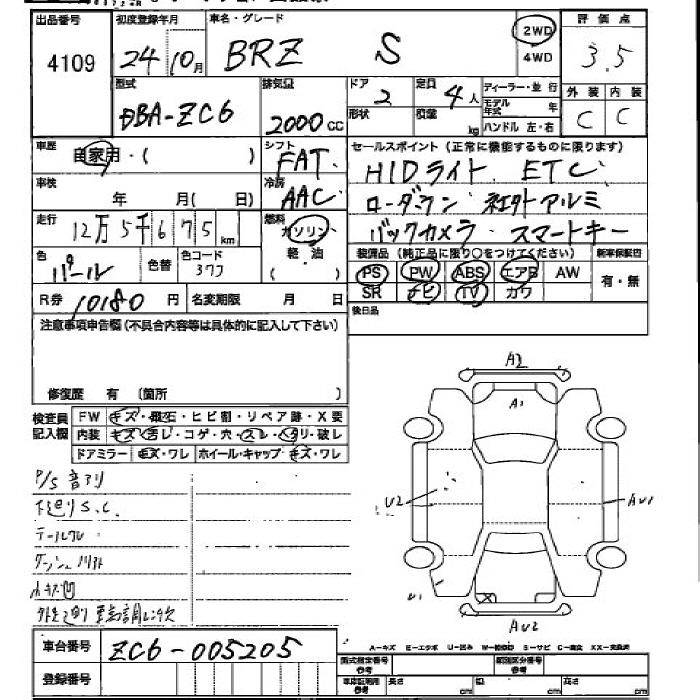 出品番号 初度登録年月 車名・グレード 評価点
4109 24年10月 BRZ S 2WD 4WD 3.5
型式 排気量 ドア 定員 ディーラー・並行 外装 内装
DBA-ZC6 2000cc 2 4人 モデル年式 年 C C
形状 積載 kg ハンドル 左・右
車歴 自家用・( ) シフト FAT セールスポイント(正常に機能するものに限ります)
車検 年 月( 日) 冷房 AAC HIDライト ETC
走行 12万5千675km 燃料 ガソリン 軽・油 ローダウン 社外アルミ
バックカメラ・スマートキー
色 パール 色替 色コード 37J 装備品(純正品に限り○をつけてください) 新車保証書
PS PW ABS エアB AW 有・無
R券 10180円 名変期限 月 日 SR ナビ TV カワ
注意事項申告欄(不具合内容等は具体的に記入して下さい) 後日品
修復歴 有(箇所 )
検査員記入欄 FW キズ・飛石・ヒビ割・リペア跡・X要
内装 キズ・汚レ・コゲ・穴・スレ・ヘタリ・破レ
ドアミラー キズ・ワレ ホイール・キャップ キズ・ワレ
A2
A1
P/S音アリ
下廻りS.C.
U2 AU1
U1
AU2
車台番号 ZC6-005205
A-キズ E-エクボ U-凹み W-補修跡 S-サビ C-腐食 XX-交換済
登録番号 型式指定番号 参考 類別区分番号 参考
車庫証明用 参考 長さ cm 幅 cm 高さ cm